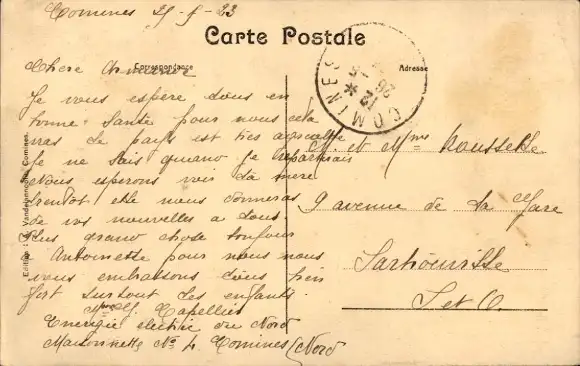 Comines 25-5-23
Carte Postale
Correspondance
Adresse
COMINES
Chère
Je vous espère tous en
bonne santé pour nous cela
de pays est très agréable
je ne sais quand je repartirais
Nous esperons voir ta mere
bientot elle nous donneras
de vos nouvelles a tous
Plus grand chose toujour
a Antoinette pour nous nous
vous embrassons tous bien
fort surtout les enfants.
Capellier
Energie electrie du Nord
Maisonnette No 4 Comines (Nord
M. et Mme Rousselle
9 avenue de la Gare
Sartrouville
S et O.
Edition : Vandenbenden, Comines.